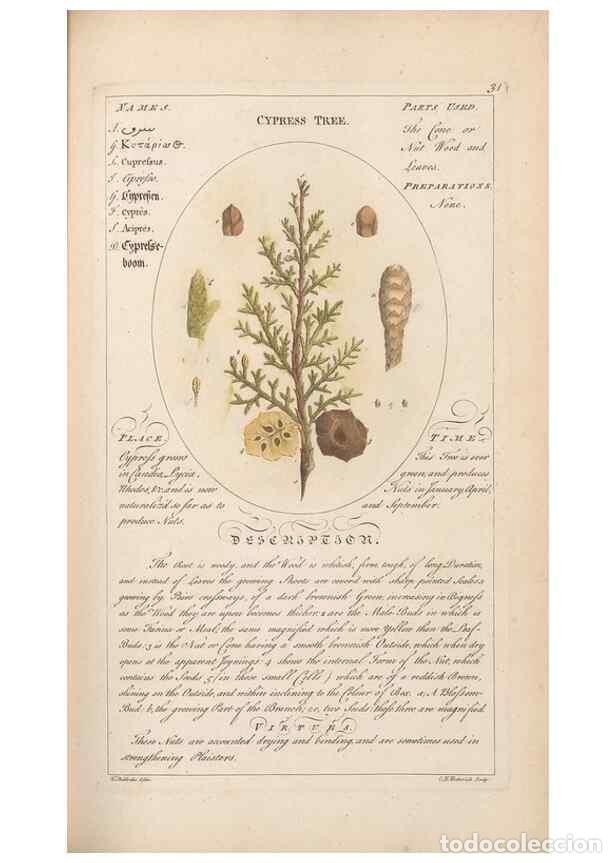 31
NAMES.
A. سرو
G. Κυπάρισσος.
L. Cupressus.
I. Cipresso.
G. Cypressen.
F. Cyprès.
S. Aciprés.
D. Cypresse-
boom.
CYPRESS TREE.
PARTS USED.
The Cone or
Nut Wood and
Leaves.
PREPARATIONS.
None.
PLACE
Cypress grows
in Candia, Lycia,
Rhodes, &c. and is now
naturaliz'd so far as to
produce Nuts.
TIME
This Tree is ever
green, and produces
Nuts in January, April,
and September.
DESCRIPTION.
The Root is woody, and the Wood is whitish, firm, tough, of long Duration,
and instead of Leaves the growing Shoots are cover'd with sharp pointed Scales
growing by Pairs crossways, of a dark brownish Green, increasing in Bigness
as the Wood they are upon becomes thicker. 2 are the Male Buds in which is
some Farina or Meal; the same magnified which is more Yellow than the Leaf-
Buds. 3 is the Nut or Cone having a smooth brownish Outside, which when dry
opens at the apparent Joynings. 4 shows the internal Form of the Nut, which
contains the Seeds 5 (in these small Cells) which are of a reddish Brown,
shining on the Outside, and within inclining to the Colour of Box. a, A Blossom-
Bud; b, the growing Part of the Branch; cc, two Seeds; these three are magnified.
VIRTUES.
These Nuts are accounted drying and binding, and are sometimes used in
strengthening Plaisters.
delin.
Sculp.
todocoleccion